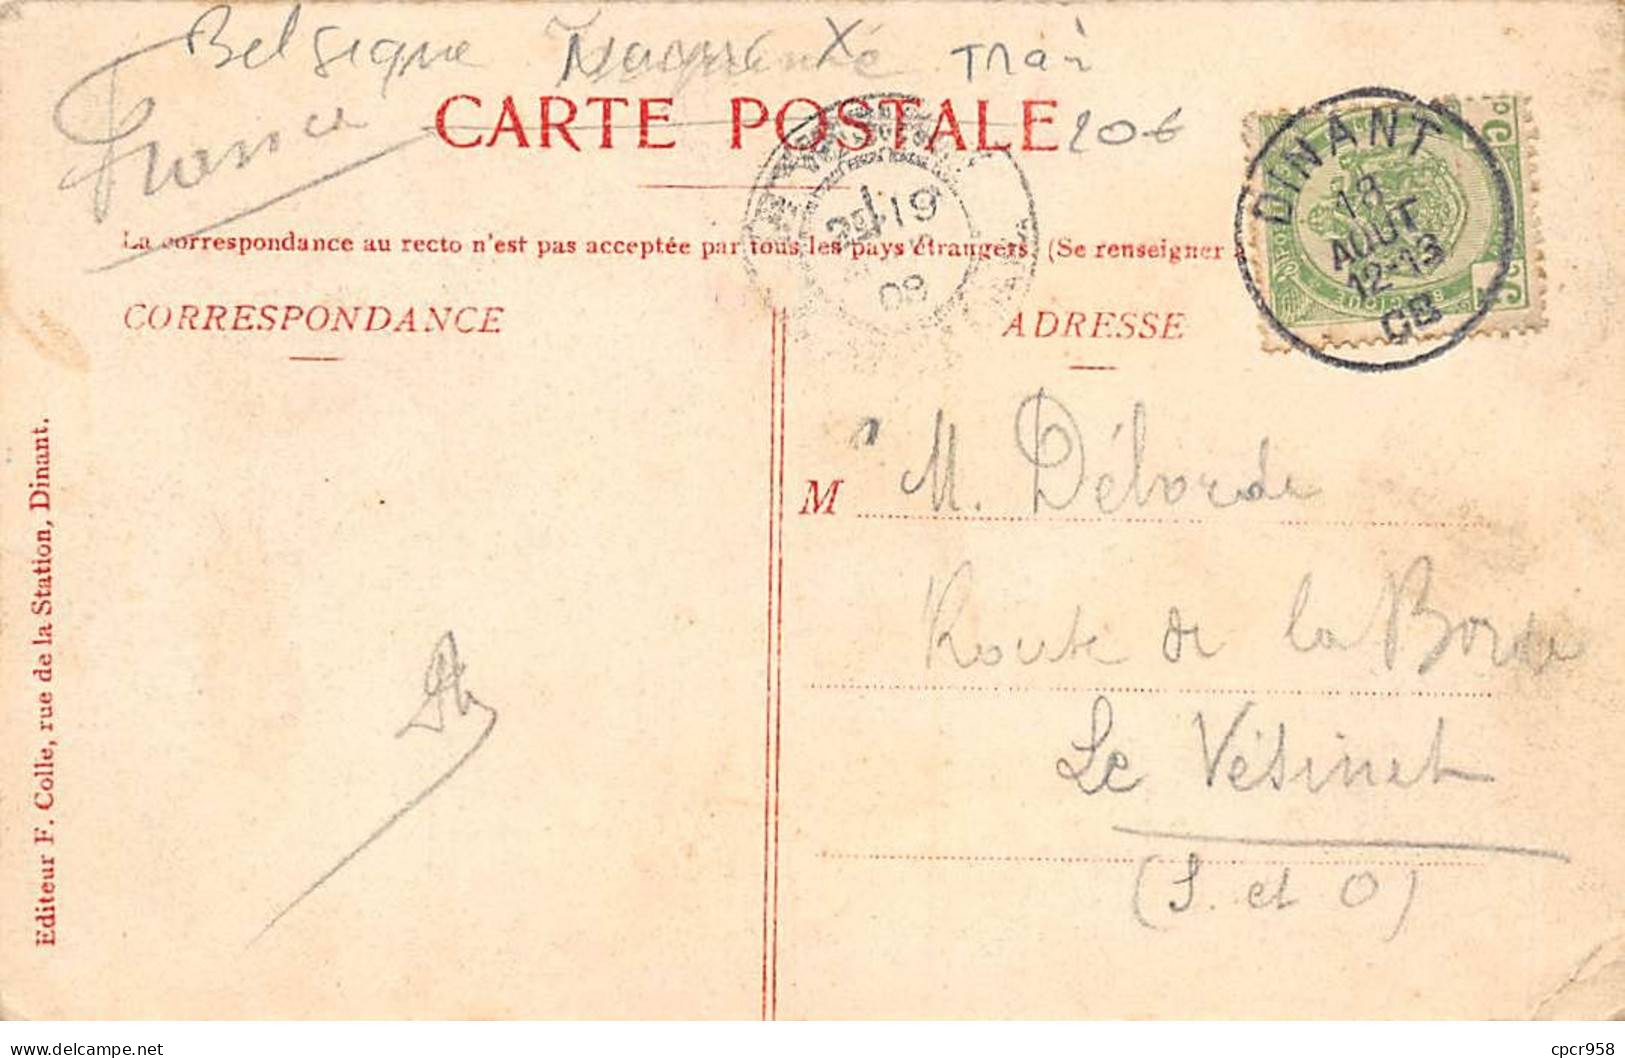 Belgique
France
CARTE POSTALE
20€
La correspondance au recto n'est pas acceptée par tous les pays étrangers. (Se renseigner
19
08
DINANT
18
AOUT
12-13
08
5 C
5 C
CORRESPONDANCE
ADRESSE
M M. Déborde
Route de la Borde
Le Vésinet
(S. et O)
Editeur F. Colle, rue de la Station, Dinant.
delcampe.net
cpcr958